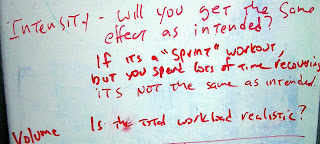 INTENSITY - Will you get the same
effect as intended?
If its a "Sprint" workout,
but you spend lots of time recovering
ITS NOT the same as intended.
Volume Is the total workload realistic?